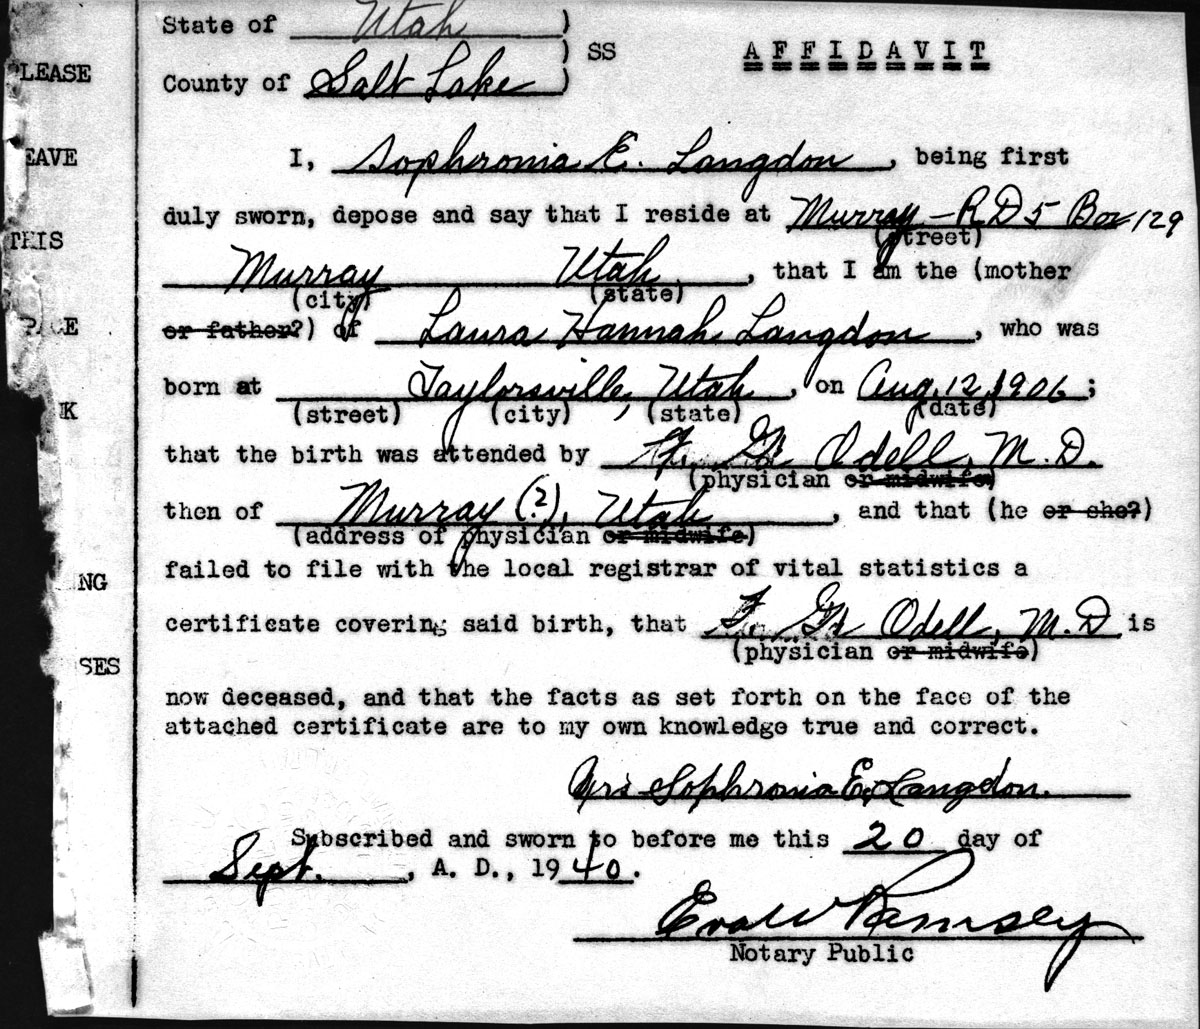 State of Utah )
) SS
AFFIDAVIT
County of Salt Lake )
I, Sophronia E. Langdon, being first
duly sworn, depose and say that I reside at Murray - R D 5 Box 129
(street)
Murray Utah, that I am the (mother
(city) (state)
or father?) of Laura Hannah Langdon, who was
born at Taylorsville, Utah, on Aug. 12, 1906;
(street) (city) (state) (date)
that the birth was attended by Odell, M. D.
(physician or midwife)
then of Murray (?), Utah, and that (he or she?)
(address of physician or midwife)
failed to file with the local registrar of vital statistics a
certificate covering said birth, that Odell, M. D is
(physician or midwife)
now deceased, and that the facts as set forth on the face of the
attached certificate are to my own knowledge true and correct.
Mrs Sophronia E. Langdon.
Subscribed and sworn to before me this 20 day of
Sept., A. D., 1940.
Eva W Ramsey
Notary Public
LEASE
EAVE
THIS
PACE
NK
NG
SES